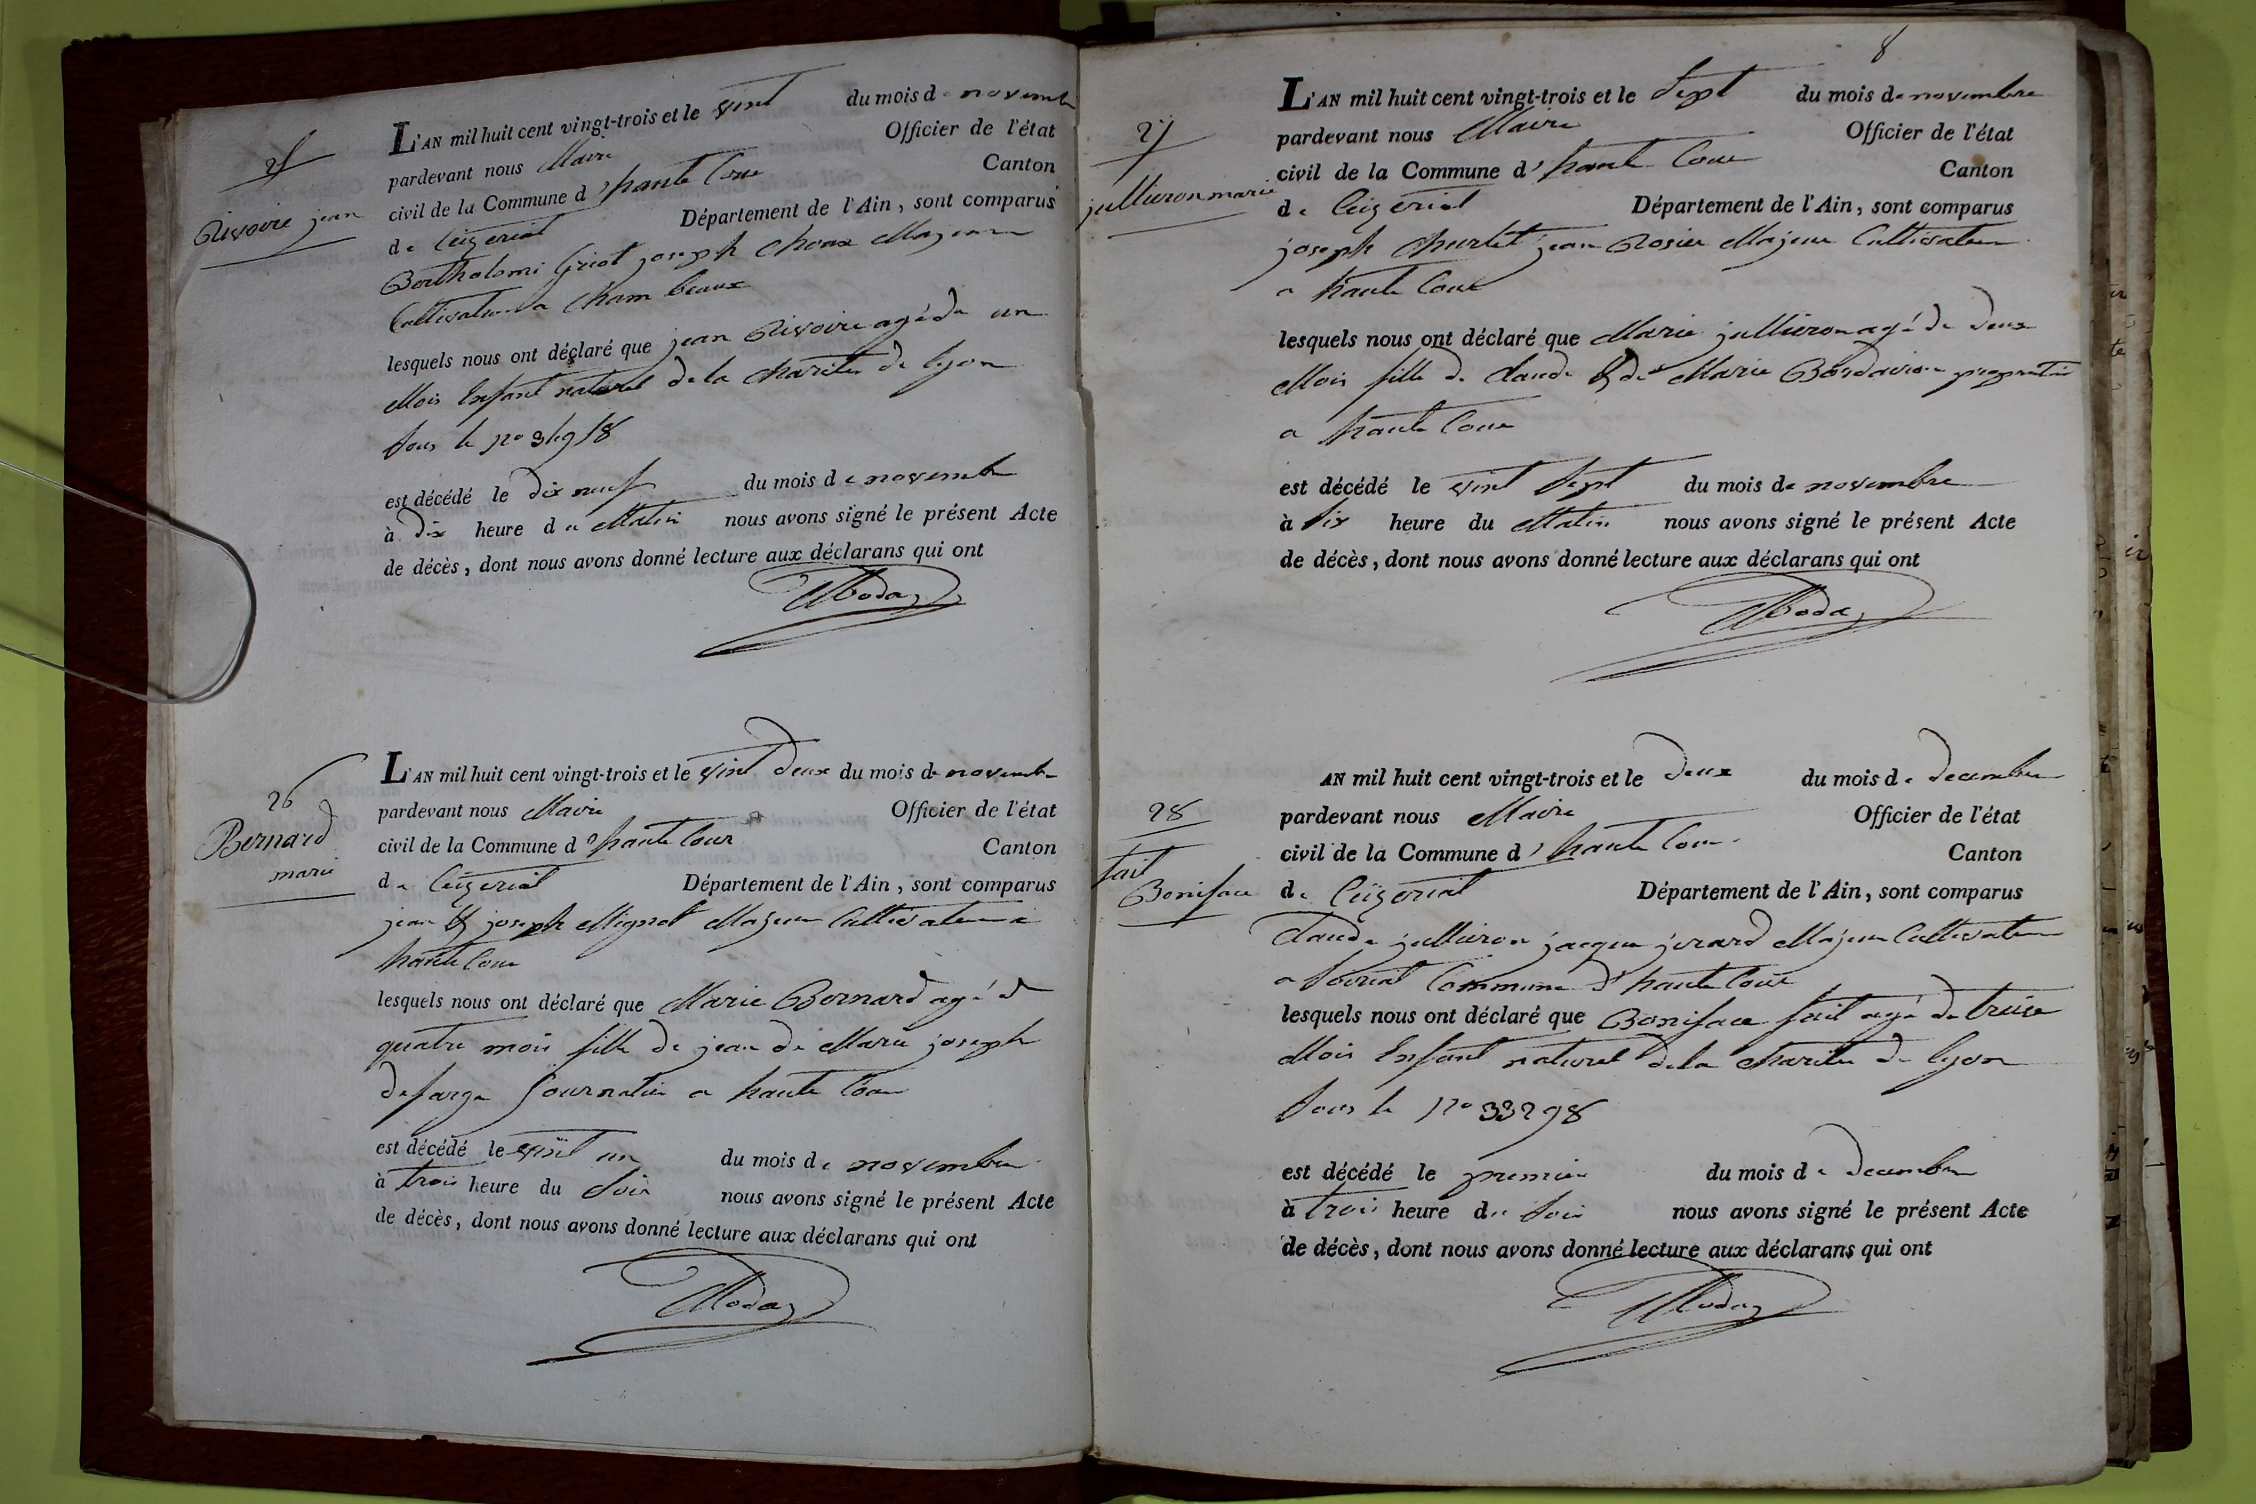 25
Rivoire jean
L'AN mil huit cent vingt-trois et le vint du mois de novembre
pardevant nous Maire Officier de l'état
civil de la Commune d'haute Cour Canton
de Ceizeriat Département de l'Ain, sont comparus
Bartholomi Griot joseph Choax Majeure
Cultivateur a Cham beaux
lesquels nous ont déclaré que jean Rivoire agé de un
Mois Enfant naturel de la Charitee de lyon
sous le no
est décédé le dix neuf du mois de novembre
à dix heure du Matin nous avons signé le présent Acte
de décès, dont nous avons donné lecture aux déclarans qui ont
26
Bernard
marie
L'AN mil huit cent vingt-trois et le vint deux du mois de novembre
pardevant nous Maire Officier de l'état
civil de la Commune d'haute Cour Canton
de Ceizeriat Département de l'Ain, sont comparus
jean & joseph Mignot Majeur Cultivateur a
haute Cour
lesquels nous ont déclaré que Marie Bernard agé d
quatre mois fille de jean de Marie joseph
defarge Journalier a haute Cour
est décédé le vint un du mois de novembre
à trois heure du soir nous avons signé le présent Acte
de décès, dont nous avons donné lecture aux déclarans qui ont
8
27
jullieron marie
L'AN mil huit cent vingt-trois et le sept du mois de novembre
pardevant nous Maire Officier de l'état
civil de la Commune d'haute Cour Canton
de Ceizeriat Département de l'Ain, sont comparus
joseph Churlet jean Rosier Majeur Cultivateur
a haute Cour
lesquels nous ont déclaré que Marie jullieron agé de deux
Mois fille de Claude & de Marie proprietaire
a haute Cour
est décédé le vint sept du mois de novembre
à six heure du Matin nous avons signé le présent Acte
de décès, dont nous avons donné lecture aux déclarans qui ont
28
fait
Boniface
AN mil huit cent vingt-trois et le deux du mois de decembre
pardevant nous Maire Officier de l'état
civil de la Commune d'haute Cour Canton
de Ceizeriat Département de l'Ain, sont comparus
Claude jullieron jacque jerard Majeur Cultivateur
a Commune d'haute Cour
lesquels nous ont déclaré que Boniface fait agé de treise
Mois Enfant naturel de la Charitee de lyon
sous le no 33298
est décédé le premier du mois de decembre
à trois heure du soir nous avons signé le présent Acte
de décès, dont nous avons donné lecture aux déclarans qui ont